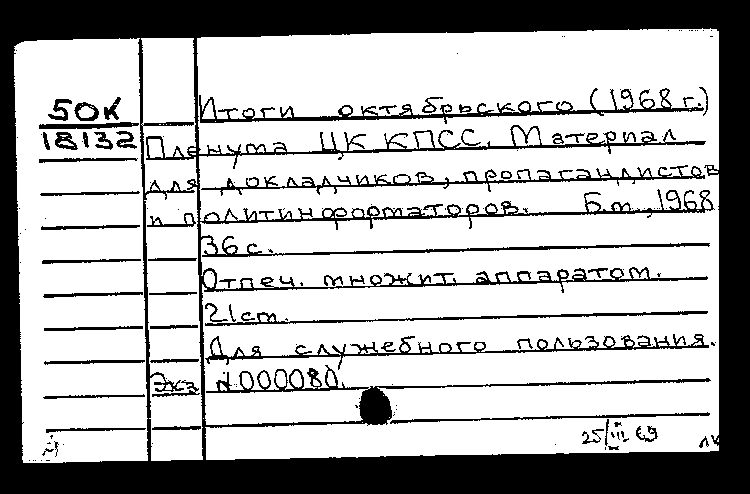 50К Итоги октябрьского (1968 г.)
18132 Пленума ЦК КПСС. Материал
для докладчиков, пропагандистов
и политинформаторов. Б.м., 1968
36 с.
Отпеч. множит. аппаратом.
21 cm.
Для служебного пользования.
Экз. N000080.
25/III 69